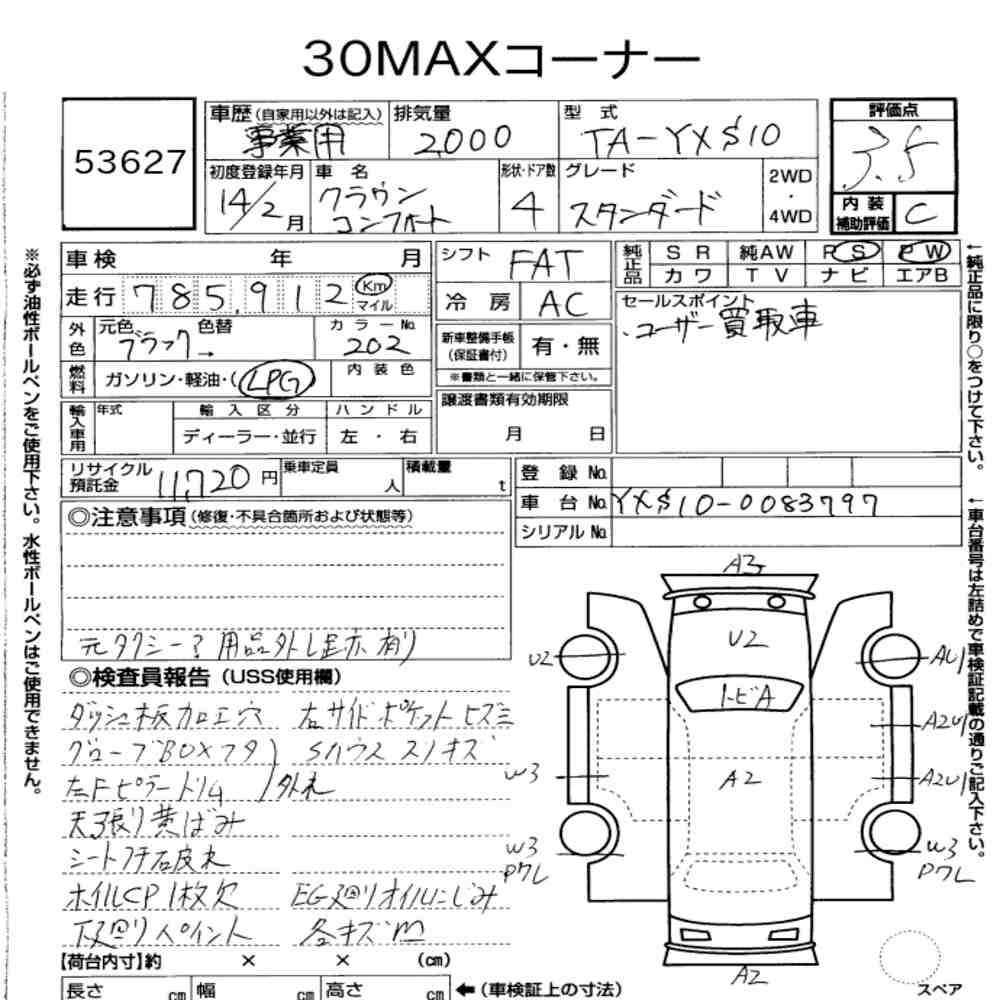 30MAXコーナー
53627
車歴(自家用以外は記入) 排気量 型式 評価点
事業用 2,000 TA-YXS10 3.5
初度登録年月 車名 形状・ドア数 グレード 2WD・4WD 内装補助評価 C
14/2月 クラウンコンフォート 4 スタンダード
車検 年 月 シフト FAT 純正品 SR 純AW PS PW
走行 785,912 Km マイル 冷房 AC カワ TV ナビ エアB
外色 元色 ブラック→ 色替 カラーNo. 202
新車整備手帳(保証書付) 有・無
※書類と一緒に保管下さい。
セールスポイント
・ユーザー買取車
燃料 ガソリン・軽油・(LPG) 内装色
輸入車用 年式 輸入区分 ハンドル
ディーラー・並行 左・右
譲渡書類有効期限
月 日
リサイクル預託金 11,720円 乗車定員 人 積載量 t
登録No.
車台No. YXS10-0083797
シリアルNo.
◎注意事項(修復・不具合箇所および状態等)
元タクシー? 用品外し跡有り
◎検査員報告(USS使用欄)
ダッシュ板加工穴 右サイドポケットヒズミ
グローブBOXフタ) Sハウススリキズ
左Fピラートリム)外れ
天張り黄ばみ
シートフチ石皮れ
ホイルCP1枚欠 EG廻りオイルにじみ
下廻りペイント 各キズm
【荷台内寸】約 × × (cm)
長さ cm 幅 cm 高さ cm ←(車検証上の寸法)
A3
U2
トビA
A2
A2
U2
W3
W3
Pワレ
AU1
A2U1
A2U1
W3
Pワレ
スペア
※必ず油性ボールペンをご使用下さい。水性ボールペンはご使用できません。
←純正品に限り○をつけて下さい。
←車台番号は左詰めで車検証記載の通りご記入下さい。